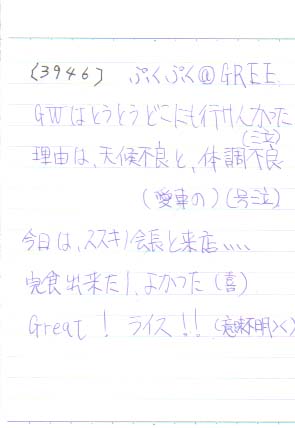 (3946) ぷくぷく@GREE
GWはとうとうどこにも行けんかった
(三泣)
理由は、天候不良と、体調不良
(愛車の)(号泣)
今日は、ススキノ会長と来店、、、、
完食出来たし、よかった(喜)
Great! ライス!!(意味不明><)